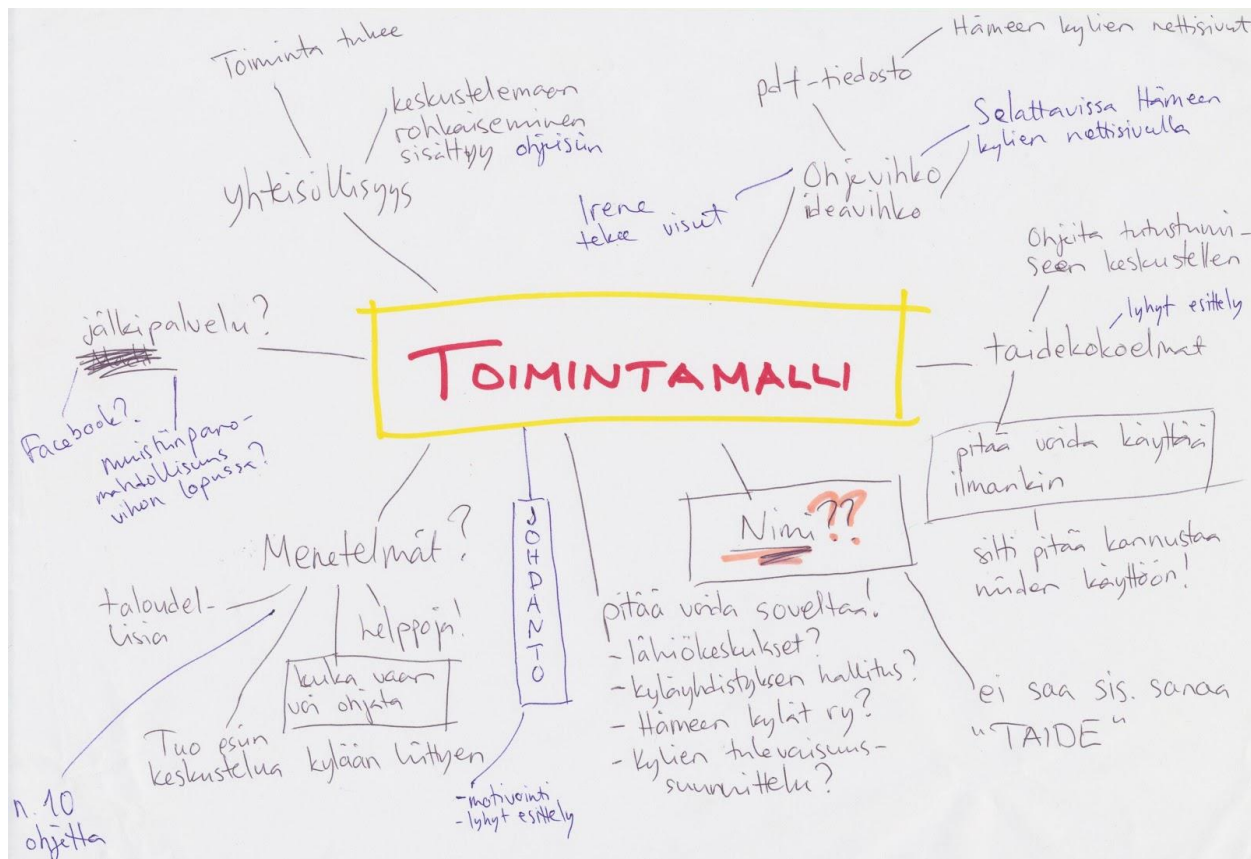 Toiminta tukee
keskustelemaan
rohkaiseminen
sisältyy ohjeisiin
yhteisöllisyys
Hämeen kylien nettisivut
pdf-tiedosto
Selattavissa Hämeen
kylien nettisivulla
Ohjevihko
ideavihko
Irene
tekee visut
Ohjeita tutustumi-
seen keskustellen
lyhyt esittely
taidekokoelmat
pitää voida käyttää
ilmankin
silti pitää kannustaa
niiden käyttöön!
jälkipalvelu?
Facebook?
muistiinpano-
mahdollisuus
vihon lopussa?
TOIMINTAMALLI
Menetelmät?
taloudel-
lisia
helppoja!
kuka vaan
voi ohjata
Tuo esiin
keskustelua kylään liittyen
n. 10
ohjetta
JOHDANTO
-motivointi
-lyhyt esittely
pitää voida soveltaa!
-lähiökeskukset?
-kyläyhdistyksen hallitus?
-Hämeen kylät ry?
-Kylien tulevaisuus-
suunnittelu?
Nimi??
ei saa sis. sanaa
"TAIDE"